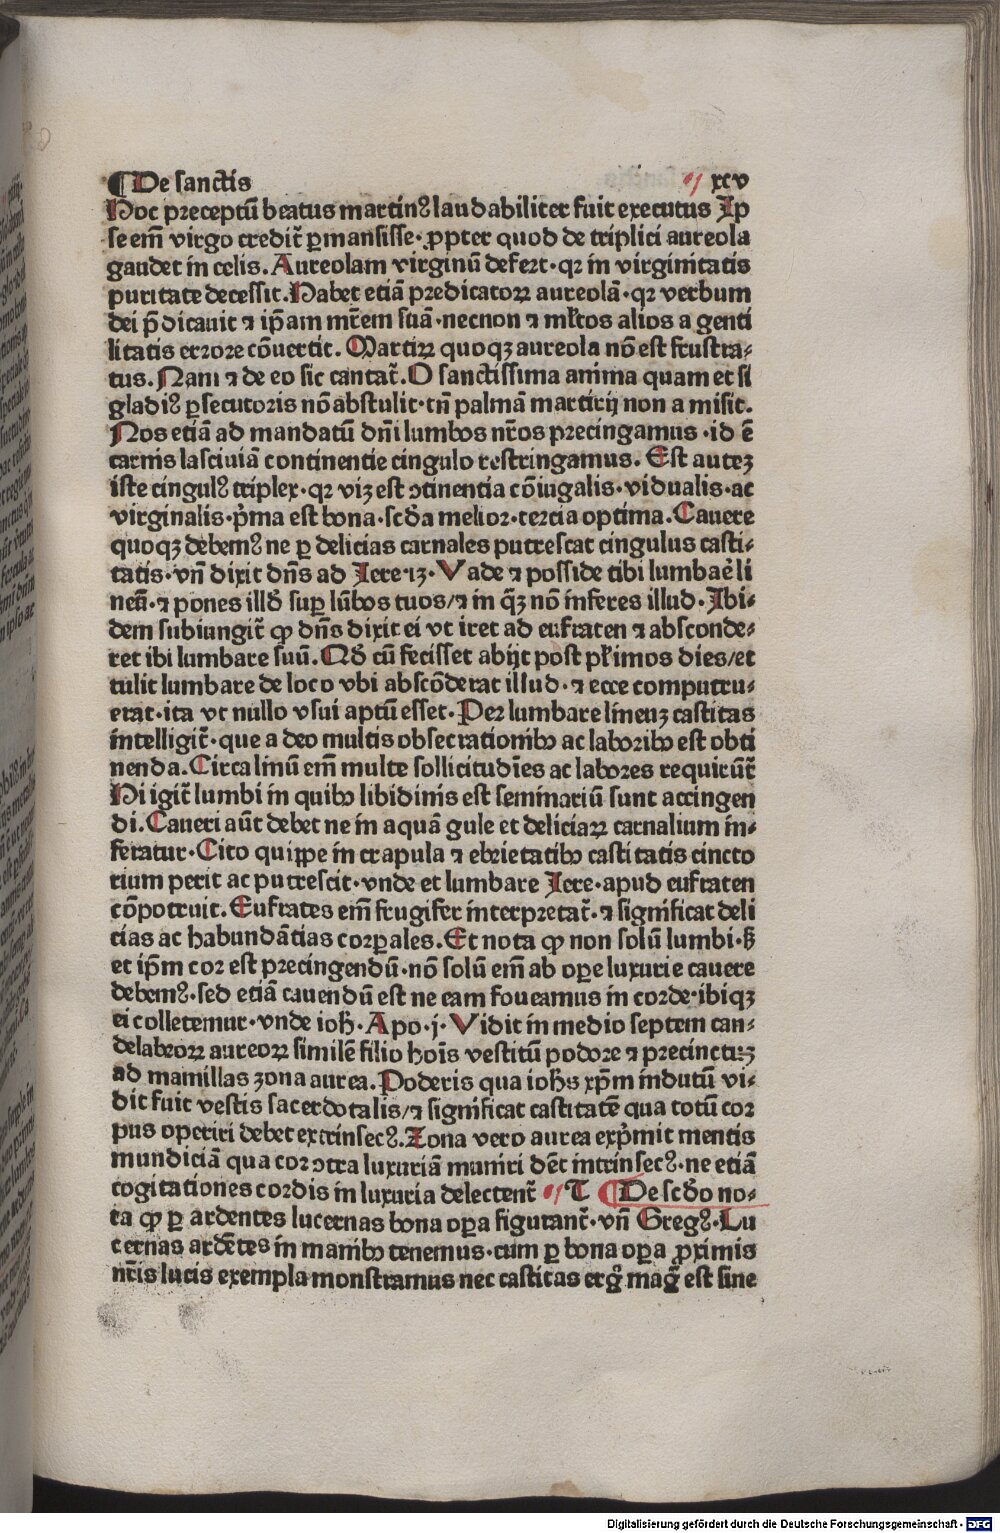 ¶De sanctis xcv
Hoc preceptū beatus martinꝰ laudabiliter fuit executus Ip
se em̄ virgo credit̄ ꝑmansisse· ꝓpter quod de triplici aureola
gaudet in celis. Aureolam virginū defert· qꝛ in virginitatis
puritate decessit. Habet etiā predicatoꝝ aureolā· qꝛ verbum
dei p̄dicauit ⁊ ip̄am mr̄em suā· necnon ⁊ ml̄tos alios a genti
litatis errore cōuertit. Martiꝝ quoqꝫ aureola nō est frustra⸗
tus. Nam ⁊ de eo sic cantat̄. O sanctissima anima quam et si
gladiꝰ ꝑsecutoris nō abstulit· tn̄ palmā martirij non a misit.
Nos etiā ad mandatū dn̄i lumbos nr̄os precingamus· id ē
carnis lasciuiā continentie cingulo restringamus. Est auteꝫ
iste cingulꝰ triplex· qꝛ viꝫ est ↄtinentia cōiugalis· vidualis· ac
virginalis· p̄ma est bona· scd̄a melior· tercia optima. Cauere
quoqꝫ debemꝰ ne ꝑ delicias carnales putrescat cingulus casti⸗
tatis· vn̄ dixit dn̄s ad Iere·13· Vade ⁊ posside tibi lumbare li
neū· ⁊ pones illd̄ suꝑ lūbos tuos/ ⁊ in q̄ꝫ nō inferes illud. Ibi⸗
dem subiungit̄ ꝙ dn̄s dixit ei vt iret ad eufraten ⁊ absconde⸗
ret ibi lumbare suū. Qd̄ cū fecisset abijt post pl̄imos dies/ et
tulit lumbare de loco vbi abscōderat illud· ⁊ ecce computru⸗
erat· ita vt nullo vsui aptū esset. Per lumbare lineuꝫ castitas
intelligit̄· que a deo multis obsecrationibꝯ ac laboribꝯ est obti
nenda. Circa linū em̄ multe sollicitudīes ac labores requirūt̄
Hi igit̄ lumbi in quibꝯ libidinis est seminariū sunt accingen
di. Caueri aūt debet ne in aquā gule et deliciaꝝ carnalium in⸗
feratur· Cito quippe in crapula ⁊ ebrietatibꝯ castitatis cincto
rium perit ac putrescit· vnde et lumbare Iere· apud eufraten
cōpotruit. Eufrates em̄ frugifer interpretat̄· ⁊ significat deli
cias ac habundātias corꝑales. Et nota ꝙ non solū lumbi· ẞ
et ip̄m cor est precingendū· nō solū em̄ ab oꝑe luxurie cauere
debemꝰ· sed etiā cauendū est ne eam foueamus in corde· ibiqꝫ
ei colletemur· vnde ioh̄· Apo·j· Vidit in medio septem can⸗
delabroꝝ aureoꝝ similē filio hoīs vestitū podore ⁊ precinctuꝫ
ad mamillas zona aurea. Poderis qua ioh̄s xp̄m indutū vi⸗
dit fuit vestis sacerdotalis/ ⁊ significat castitatē qua totū cor
pus operiri debet extrinsecꝰ. Zona vero aurea exp̄mit mentis
mundiciā qua cor ↄtra luxuriā muniri dēt intrinsecꝰ· ne etiā
cogitationes cordis in luxuria delectent̄ T ¶De scd̄o no⸗
ta ꝙ ꝑ ardentes lucernas bona oꝑa figurant̄· vn̄ Gregꝰ· Lu
cernas ardētes in manibꝯ tenemus· cum ꝑ bona oꝑa ꝓximis
nr̄is lucis exempla monstramus nec castitas ergͦ magͣ est sine
Digitalisierung gefördert durch die Deutsche Forschungsgemeinschaft - DFG